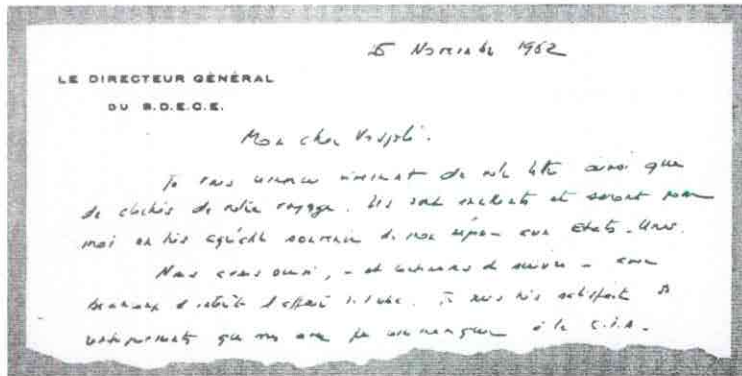 Novembre 1962
LE DIRECTEUR GÉNÉRAL
DU S.D.E.C.E.
Mon cher Vosjoli.
Je vous remercie vivement de votre lettre ainsi que
de clichés de notre voyage. Ils sont excellents et seront pour
moi un très agréable souvenir de mon séjour aux Etats-Unis.
Nous avons suivi, - et continuons de suivre - avec
beaucoup d'intérêt l'affaire de Cuba. Je suis très satisfait
renseignements que vous avez pu communiquer à la C.I.A.